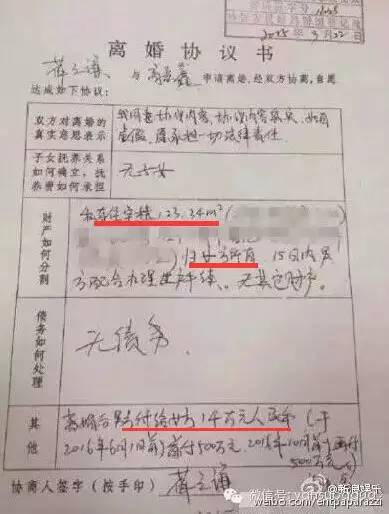 2015年9月22日
离婚协议书
薛之谦 与 高磊鑫 申请离婚，经双方协商，自愿
达成如下协议：
双方对离婚的
真实意思表示
我同意协议内容，协议内容真实，如有
虚假，愿承担一切法律责任
子女抚养关系
如何确立，抚
养费如何承担
无子女
财产如何分割
私有住宅楼123.34m²(
归女方所有 15日内男
方配合办理过户手续。无其它财产
债务如何处理
无债务
其他
离婚后男方付给女方1千万元人民币(于
2016年6月1日前首付500万元，2016年10月前再付
500万元)
协商人签字（按手印） 薛之谦
@新浪娱乐
weibo.com/entpaparazzi